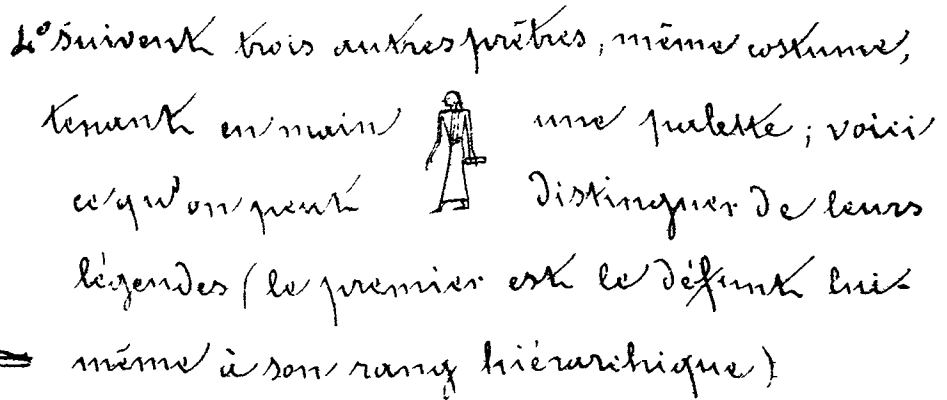 4° Suivent trois autres prêtres, même costume,
tenant en main une palette ; voici
ce qu'on peut distinguer de leurs
légendes (le premier est le défunt lui-
même à son rang hiérarchique)